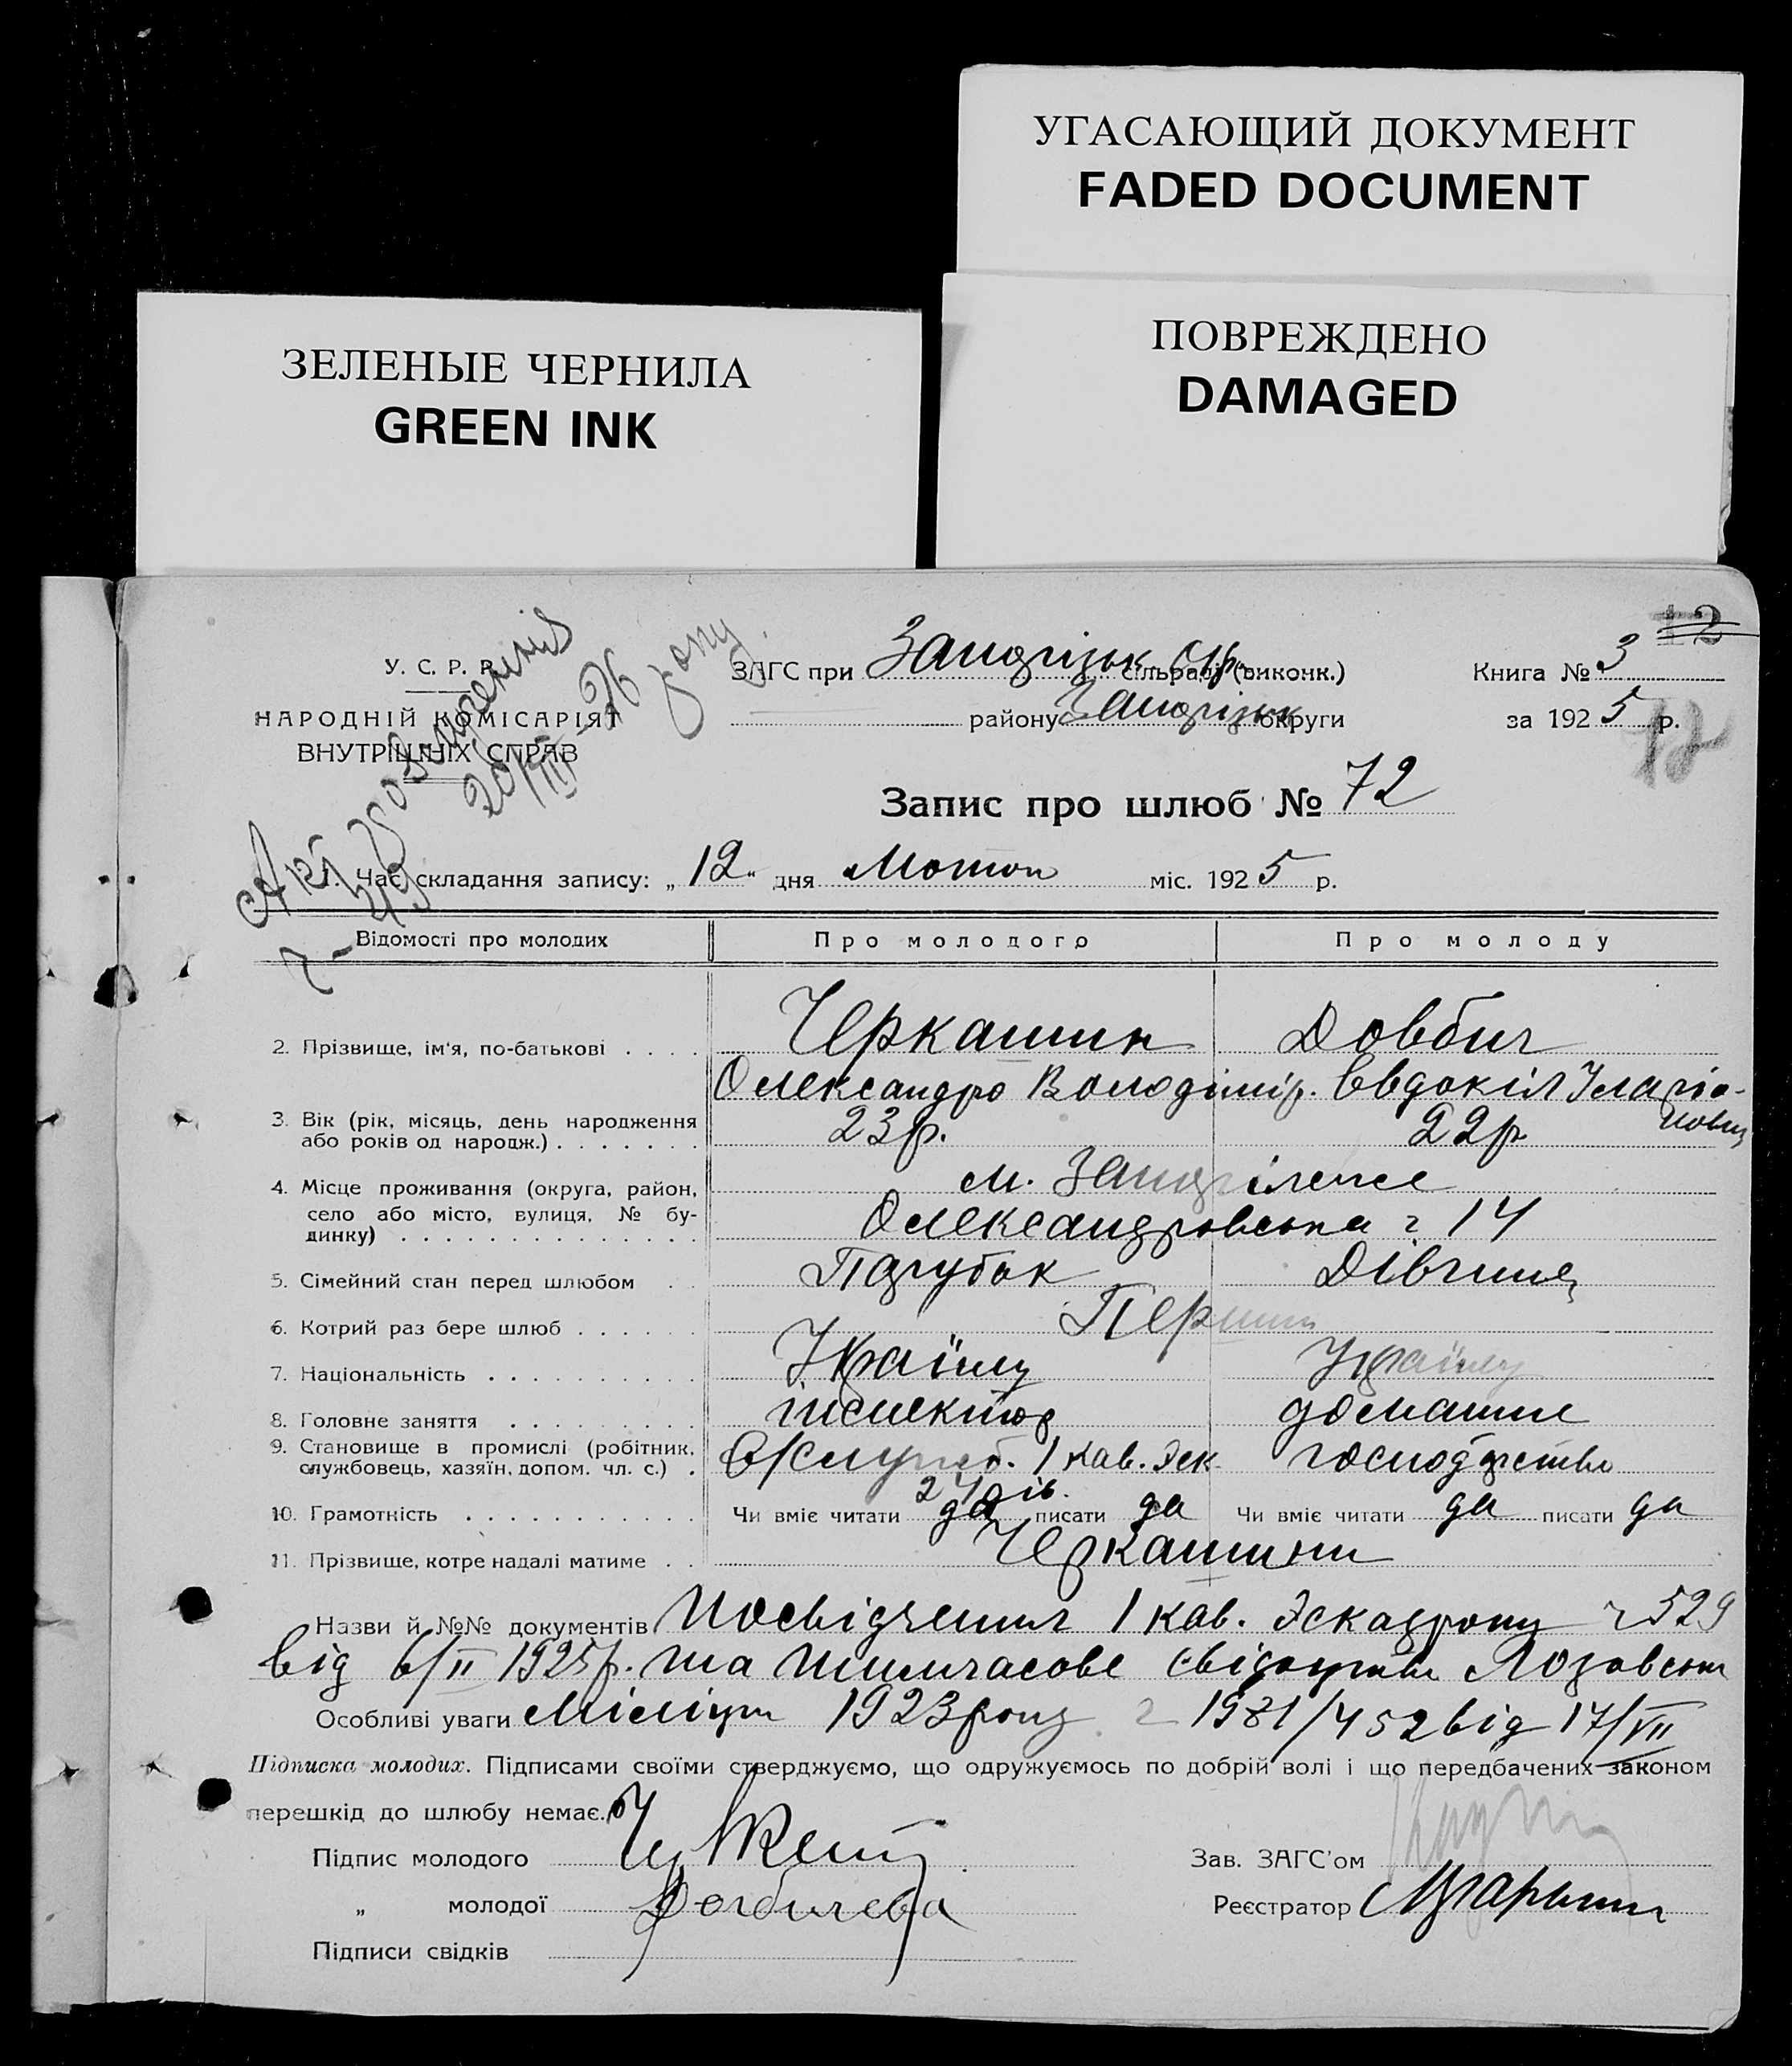 УГАСАЮЩИЙ ДОКУМЕНТ
FADED DOCUMENT
ЗЕЛЕНЫЕ ЧЕРНИЛА
GREEN INK
ПОВРЕЖДЕНО
DAMAGED
12
У. С. Р. Р.
НАРОДНІЙ КОМІСАРІЯТ
ВНУТРІШНІХ СПРАВ
ЗАГС при сільраді (виконк.)
Книга № 3
району округи
за 1925 р.
12
Запис про шлюб № 72
1. Час складання запису: „12“ дня міс. 1925 р.
Відомості про молодих
Про молодого
Про молоду
2. Прізвище, ім'я, по-батькові . . . .
Черкашин
Довбич
Олександро Володімір.
3. Вік (рік, місяць, день народження
або років од народж.) . . . . . . .
23р.
22р
4. Місце проживання (округа, район,
село або місто, вулиця, № бу-
динку) . . . . . . . . . . . . . .
м.
Олександровська 14
5. Сімейний стан перед шлюбом . .
Парубок
Дівчина
6. Котрий раз бере шлюб . . . . . .
7. Національність . . . . . . . . . .
8. Головне заняття . . . . . . . . .
інспектор
домашнє
9. Становище в промислі (робітник,
службовець, хазяїн, допом. чл. с.) .
1 кав. Эск
господарство
24 дів.
10. Грамотність . . . . . . . . . . .
Чи вміє читати да писати да
Чи вміє читати да писати да
11. Прізвище, котре надалі матиме . .
Черкашини
Назви й №№ документів Посвідчення 1 кав. Эскадрону 529
від 6/II 1925р. та тимчасове свідоцтво
Особливі уваги Міліціи 1923 року 1981/452 від 17/VII
Підписка молодих. Підписами своїми стверджуємо, що одружуємось по добрій волі і що передбачених законом
перешкід до шлюбу немає.
Підпис молодого
Зав. ЗАГС'ом
„ молодої
Реєстратор
Підписи свідків